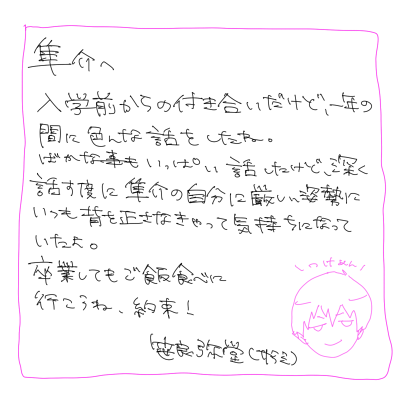 隼介へ
入学前からの付き合いだけど、一年の
間に色んな話をしたね。
ばかな事もいっぱい話したけど、深く
話す度に隼介の自分に厳しい姿勢に
いつも背を正さなきゃって気持ちになって
いたよ。
卒業してもご飯食べに
行こうね、約束!
いつけめん!
弥堂